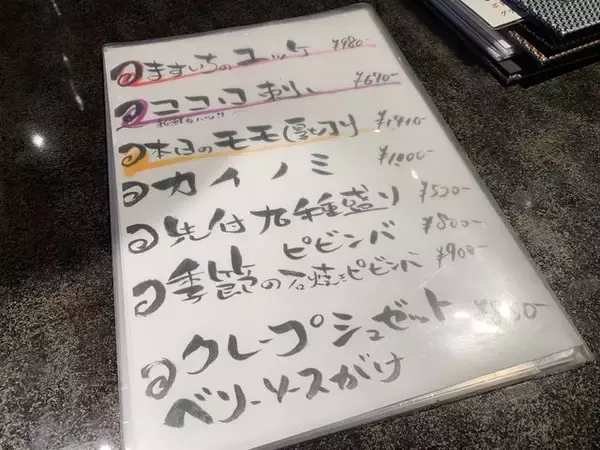 ますいちのユッケ ¥980-
ココロ刺し ¥690-
本日のモモ厚切り ¥1,910-
カイノミ ¥1,000-
先付九種盛り ¥500-
ピビンバ ¥800-
季節の石焼きピビンバ ¥900-
クレープシュゼット
ベリーソースがけ